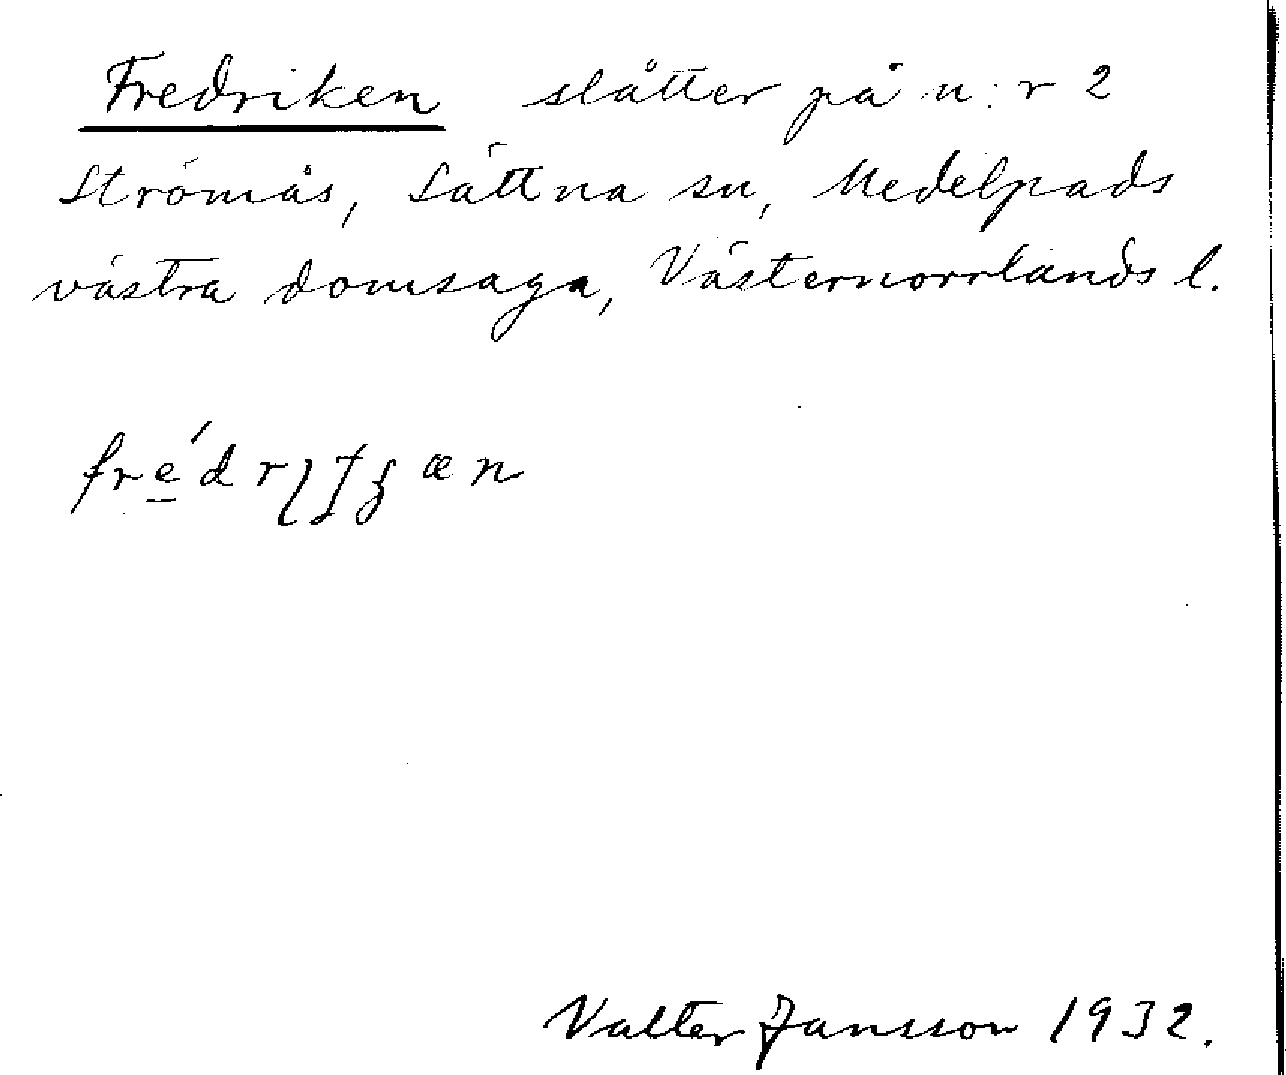 Fredriken slåtter på n:r 2
Strömås, Sättna sn, Medelpads
västra domsaga, Västernorrlands l.
Valter Jansson 1932.